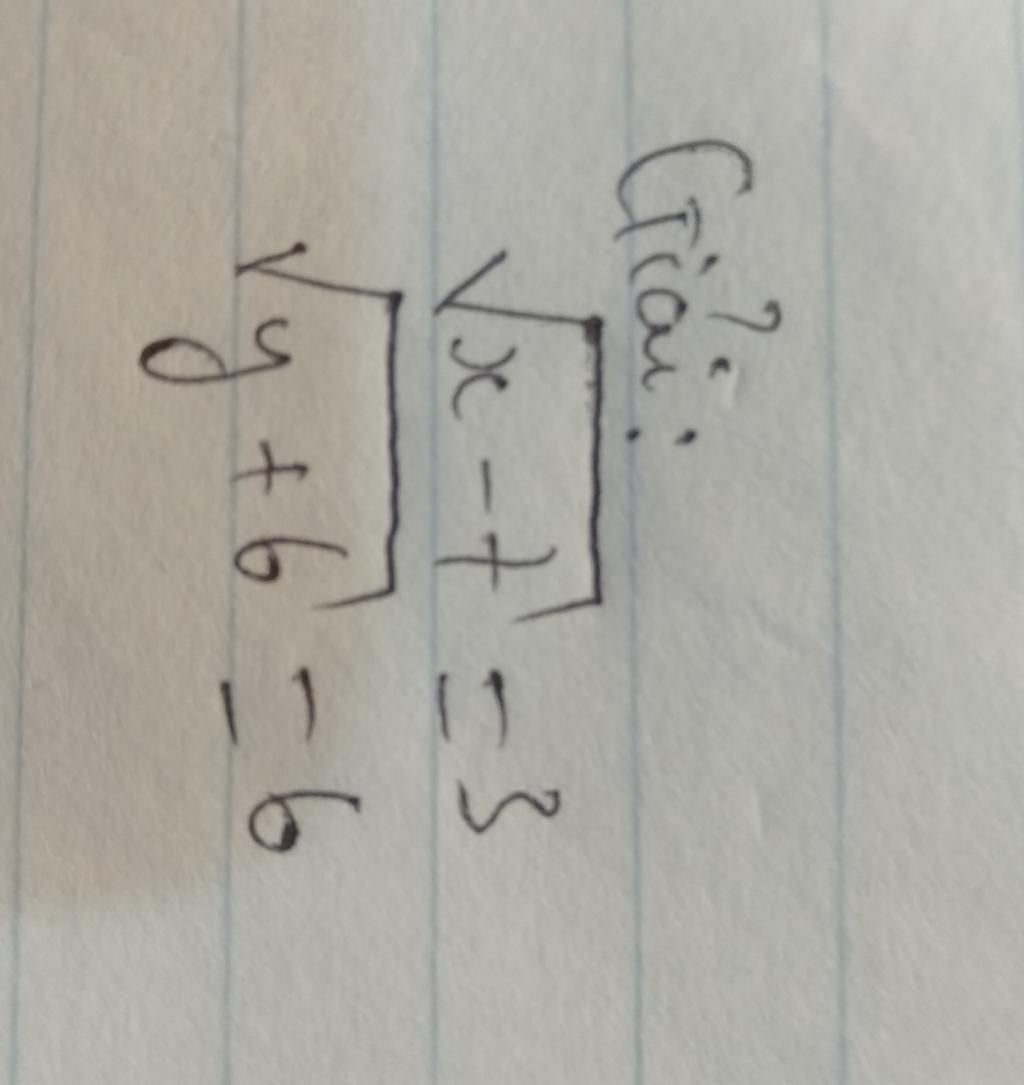 Giải:
√x - 7 = 3
√y + 6 = 6